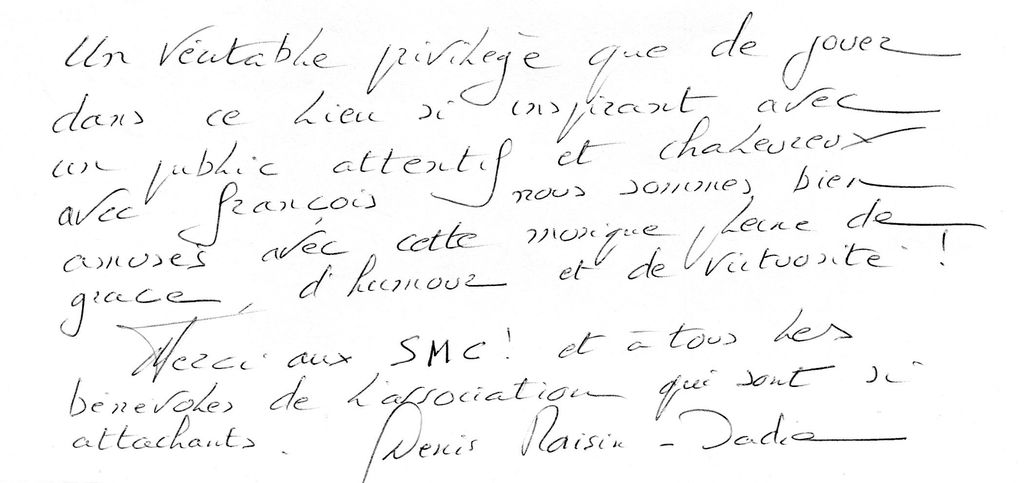 Un véritable privilège que de jouer
dans ce lieu si inspirant avec
un public attentif et chaleureux
avec françois nous sommes bien
amusés avec cette musique pleine de
grace, d'humour et de virtuosité !
Merci aux SMC ! et à tous les
bénévoles de l'association qui sont si
attachants. Denis Raisin-Dadre